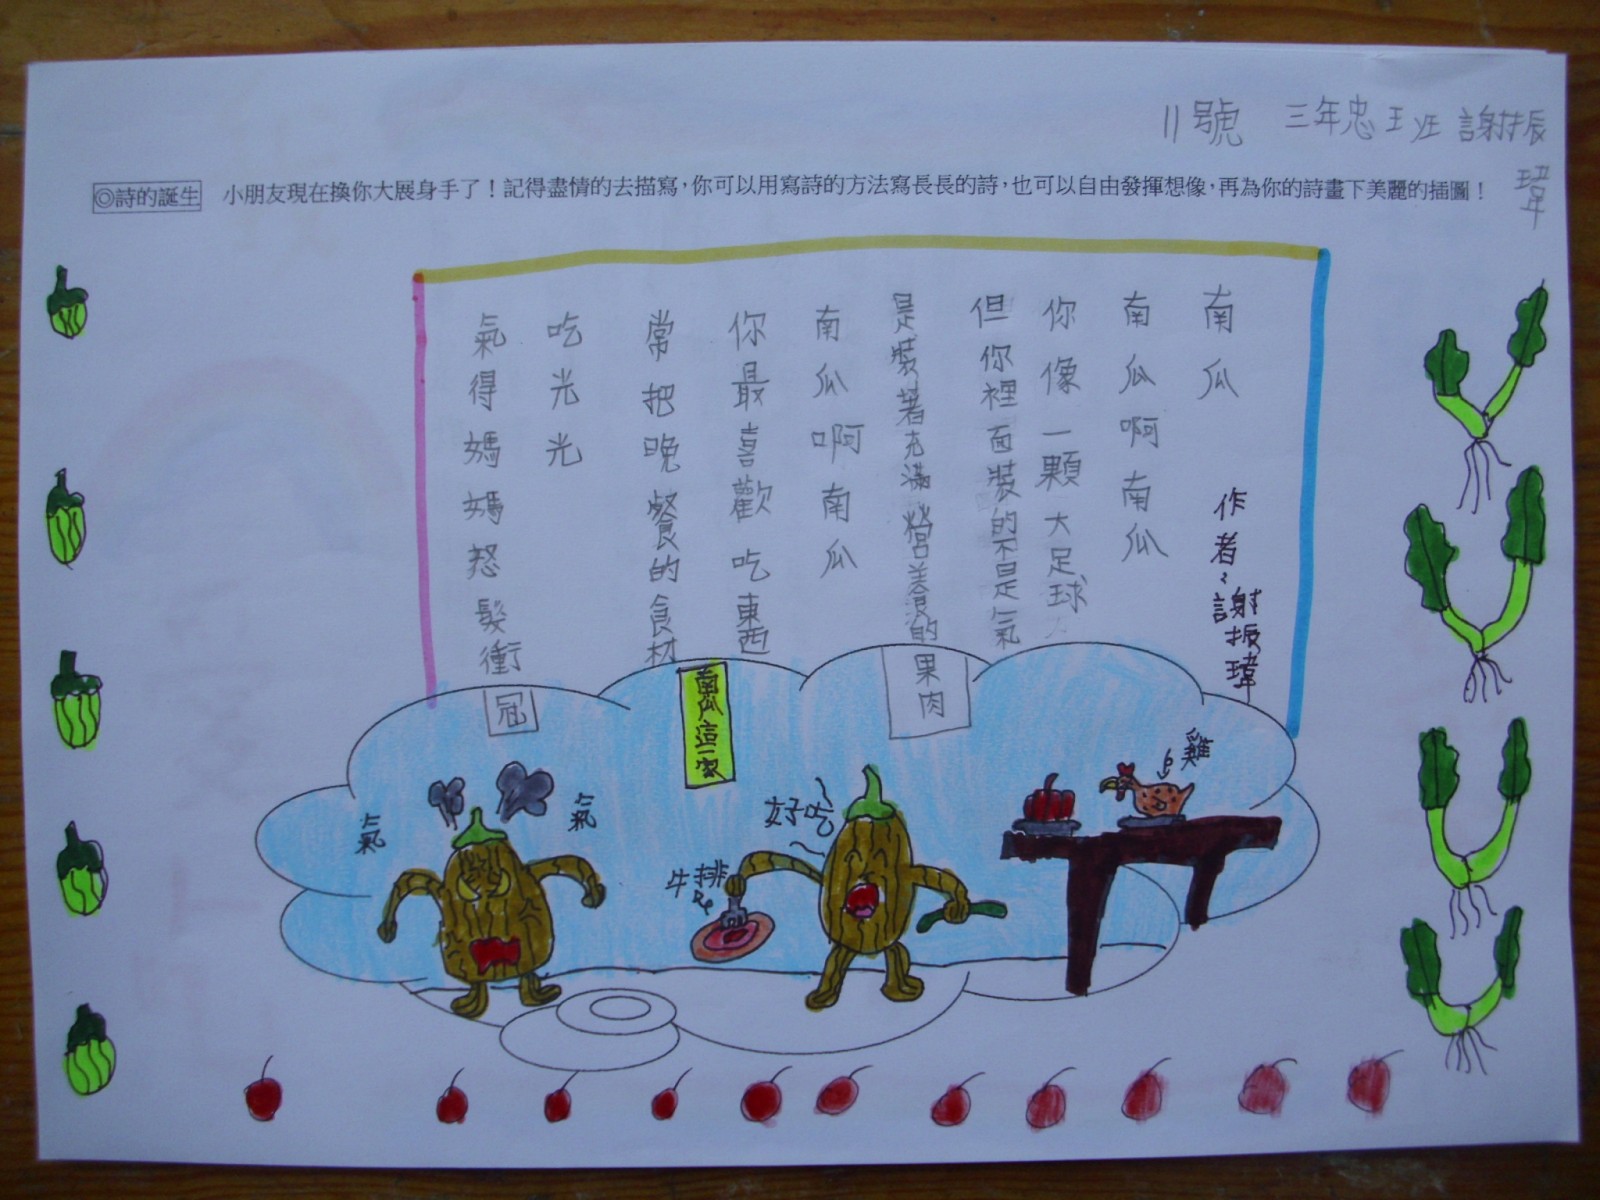 11號 三年忠王班 謝振
瑋
◎詩的誕生
小朋友現在換你大展身手了！記得盡情的去描寫，你可以用寫詩的方法寫長長的詩，也可以自由發揮想像，再為你的詩畫下美麗的插圖！
南瓜
作者：謝振瑋
南瓜啊南瓜
你像一顆大足球
但你裡面裝的不是氣
是裝著充滿營養的果肉
南瓜啊南瓜
你最喜歡吃東西
常把晚餐的食材
吃光光
氣得媽媽怒髮衝冠
南瓜這一家
雞
好吃
牛排
氣
氣